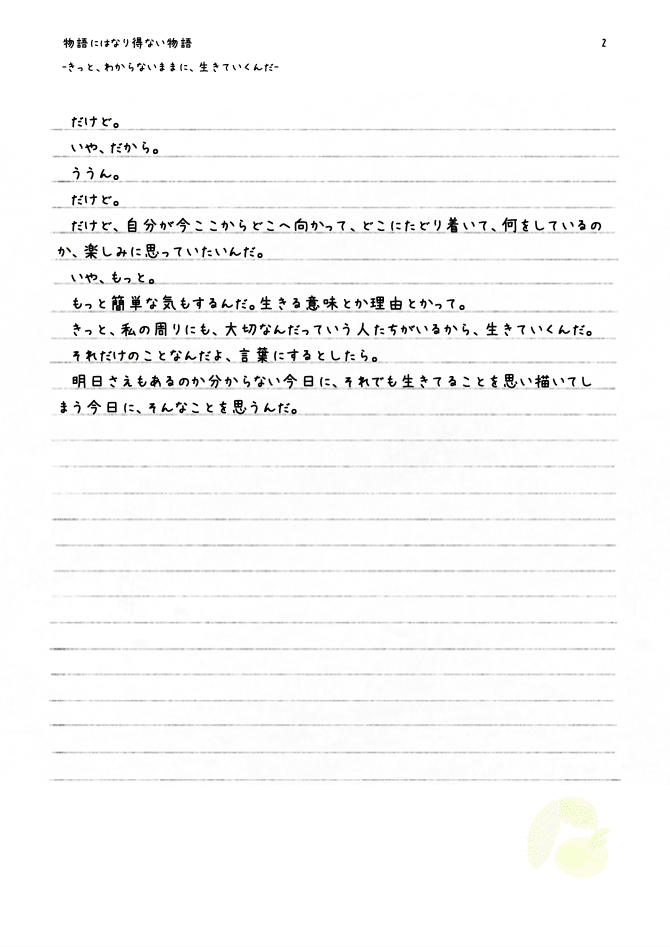 物語にはなり得ない物語
2
-きっと、わからないままに、生きていくんだ-
だけど。
いや、だから。
ううん。
だけど。
だけど、自分が今ここからどこへ向かって、どこにたどり着いて、何をしているの
か、楽しみに思っていたいんだ。
いや、もっと。
もっと簡単な気もするんだ。生きる意味とか理由とかって。
きっと、私の周りにも、大切なんだっていう人たちがいるから、生きていくんだ。
それだけのことなんだよ、言葉にするとしたら。
明日さえもあるのか分からない今日に、それでも生きてることを思い描いてし
まう今日に、そんなことを思うんだ。